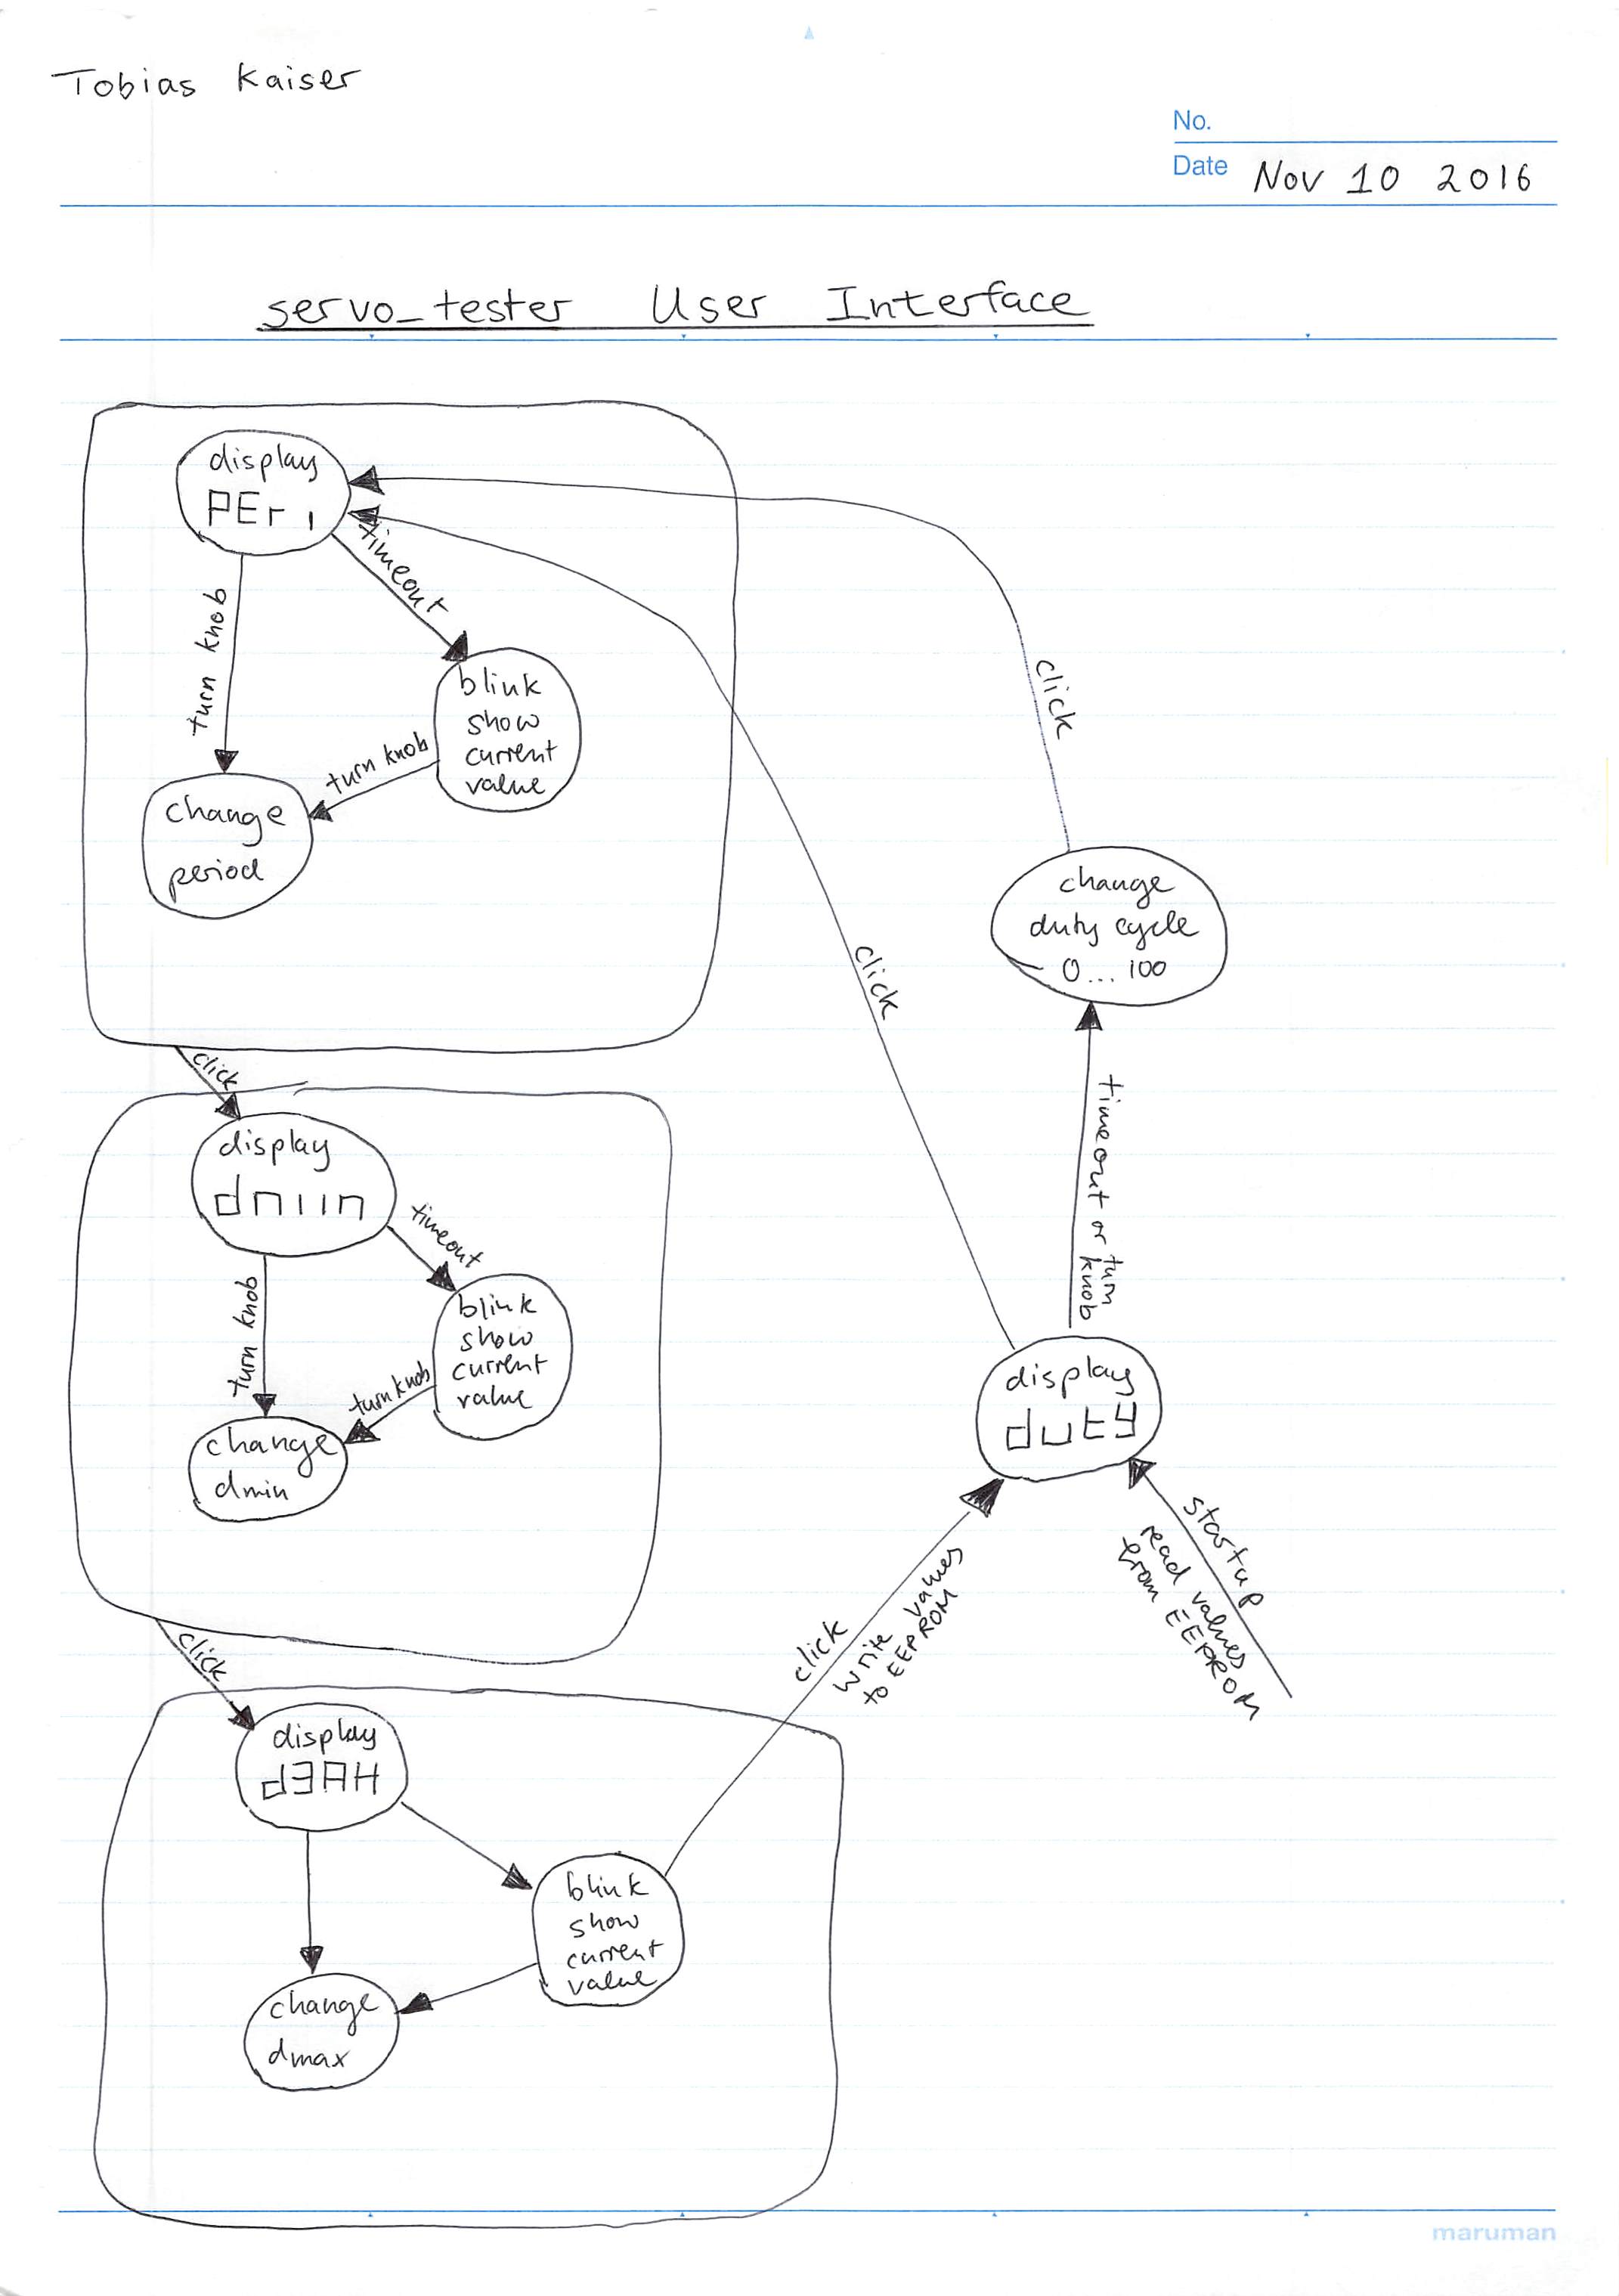 Tobias Kaiser
No.
Date Nov 10 2016
servo_tester User Interface
display
PEri
timeout
turn knob
blink
show
current
value
turn knob
change
period
click
change
duty cycle
0...100
click
click
display
dnıın
timeout
turn knob
blink
show
current
value
turn knob
change
dmin
timeout or turn
knob
display
dutY
startup
read values
from EEPROM
click
write values
to EEPROM
click
display
dƎAH
blink
show
current
value
change
dmax
maruman